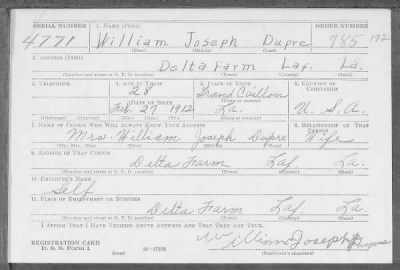 SERIAL NUMBER 1. NAME (Print) ORDER NUMBER
4771 William Joseph Dupre 785 192
(First) (Middle) (Last)
2. ADDRESS (Print)
Delta Farm Laf. La.
(Number and street or R. F. D. number) (Town) (County) (State)
3. TELEPHONE 4. AGE IN YEARS 5. PLACE OF BIRTH 6. COUNTRY OF CITIZENSHIP
28 Grand Caillou
DATE OF BIRTH (Town or county)
Feb. 27 1912 La. U. S. A.
(Exchange) (No.) (Mo.) (Day) (Yr.) (State or country)
7. NAME OF PERSON WHO WILL ALWAYS KNOW YOUR ADDRESS 8. RELATIONSHIP OF THAT PERSON
Mrs. William Joseph Dupre Wife
(Mr., Mrs., Miss) (First) (Middle) (Last)
9. ADDRESS OF THAT PERSON
Delta Farm Laf La.
(Number and street or R. F. D. number) (Town) (County) (State)
10. EMPLOYER'S NAME
Self
11. PLACE OF EMPLOYMENT OR BUSINESS
Delta Farm Laf La.
(Number and street or R. F. D. number) (Town) (County) (State)
I AFFIRM THAT I HAVE VERIFIED ABOVE ANSWERS AND THAT THEY ARE TRUE.
William Joseph Dupre
REGISTRATION CARD
D. S. S. Form 1 (over) 16-17105 (Registrant's signature)